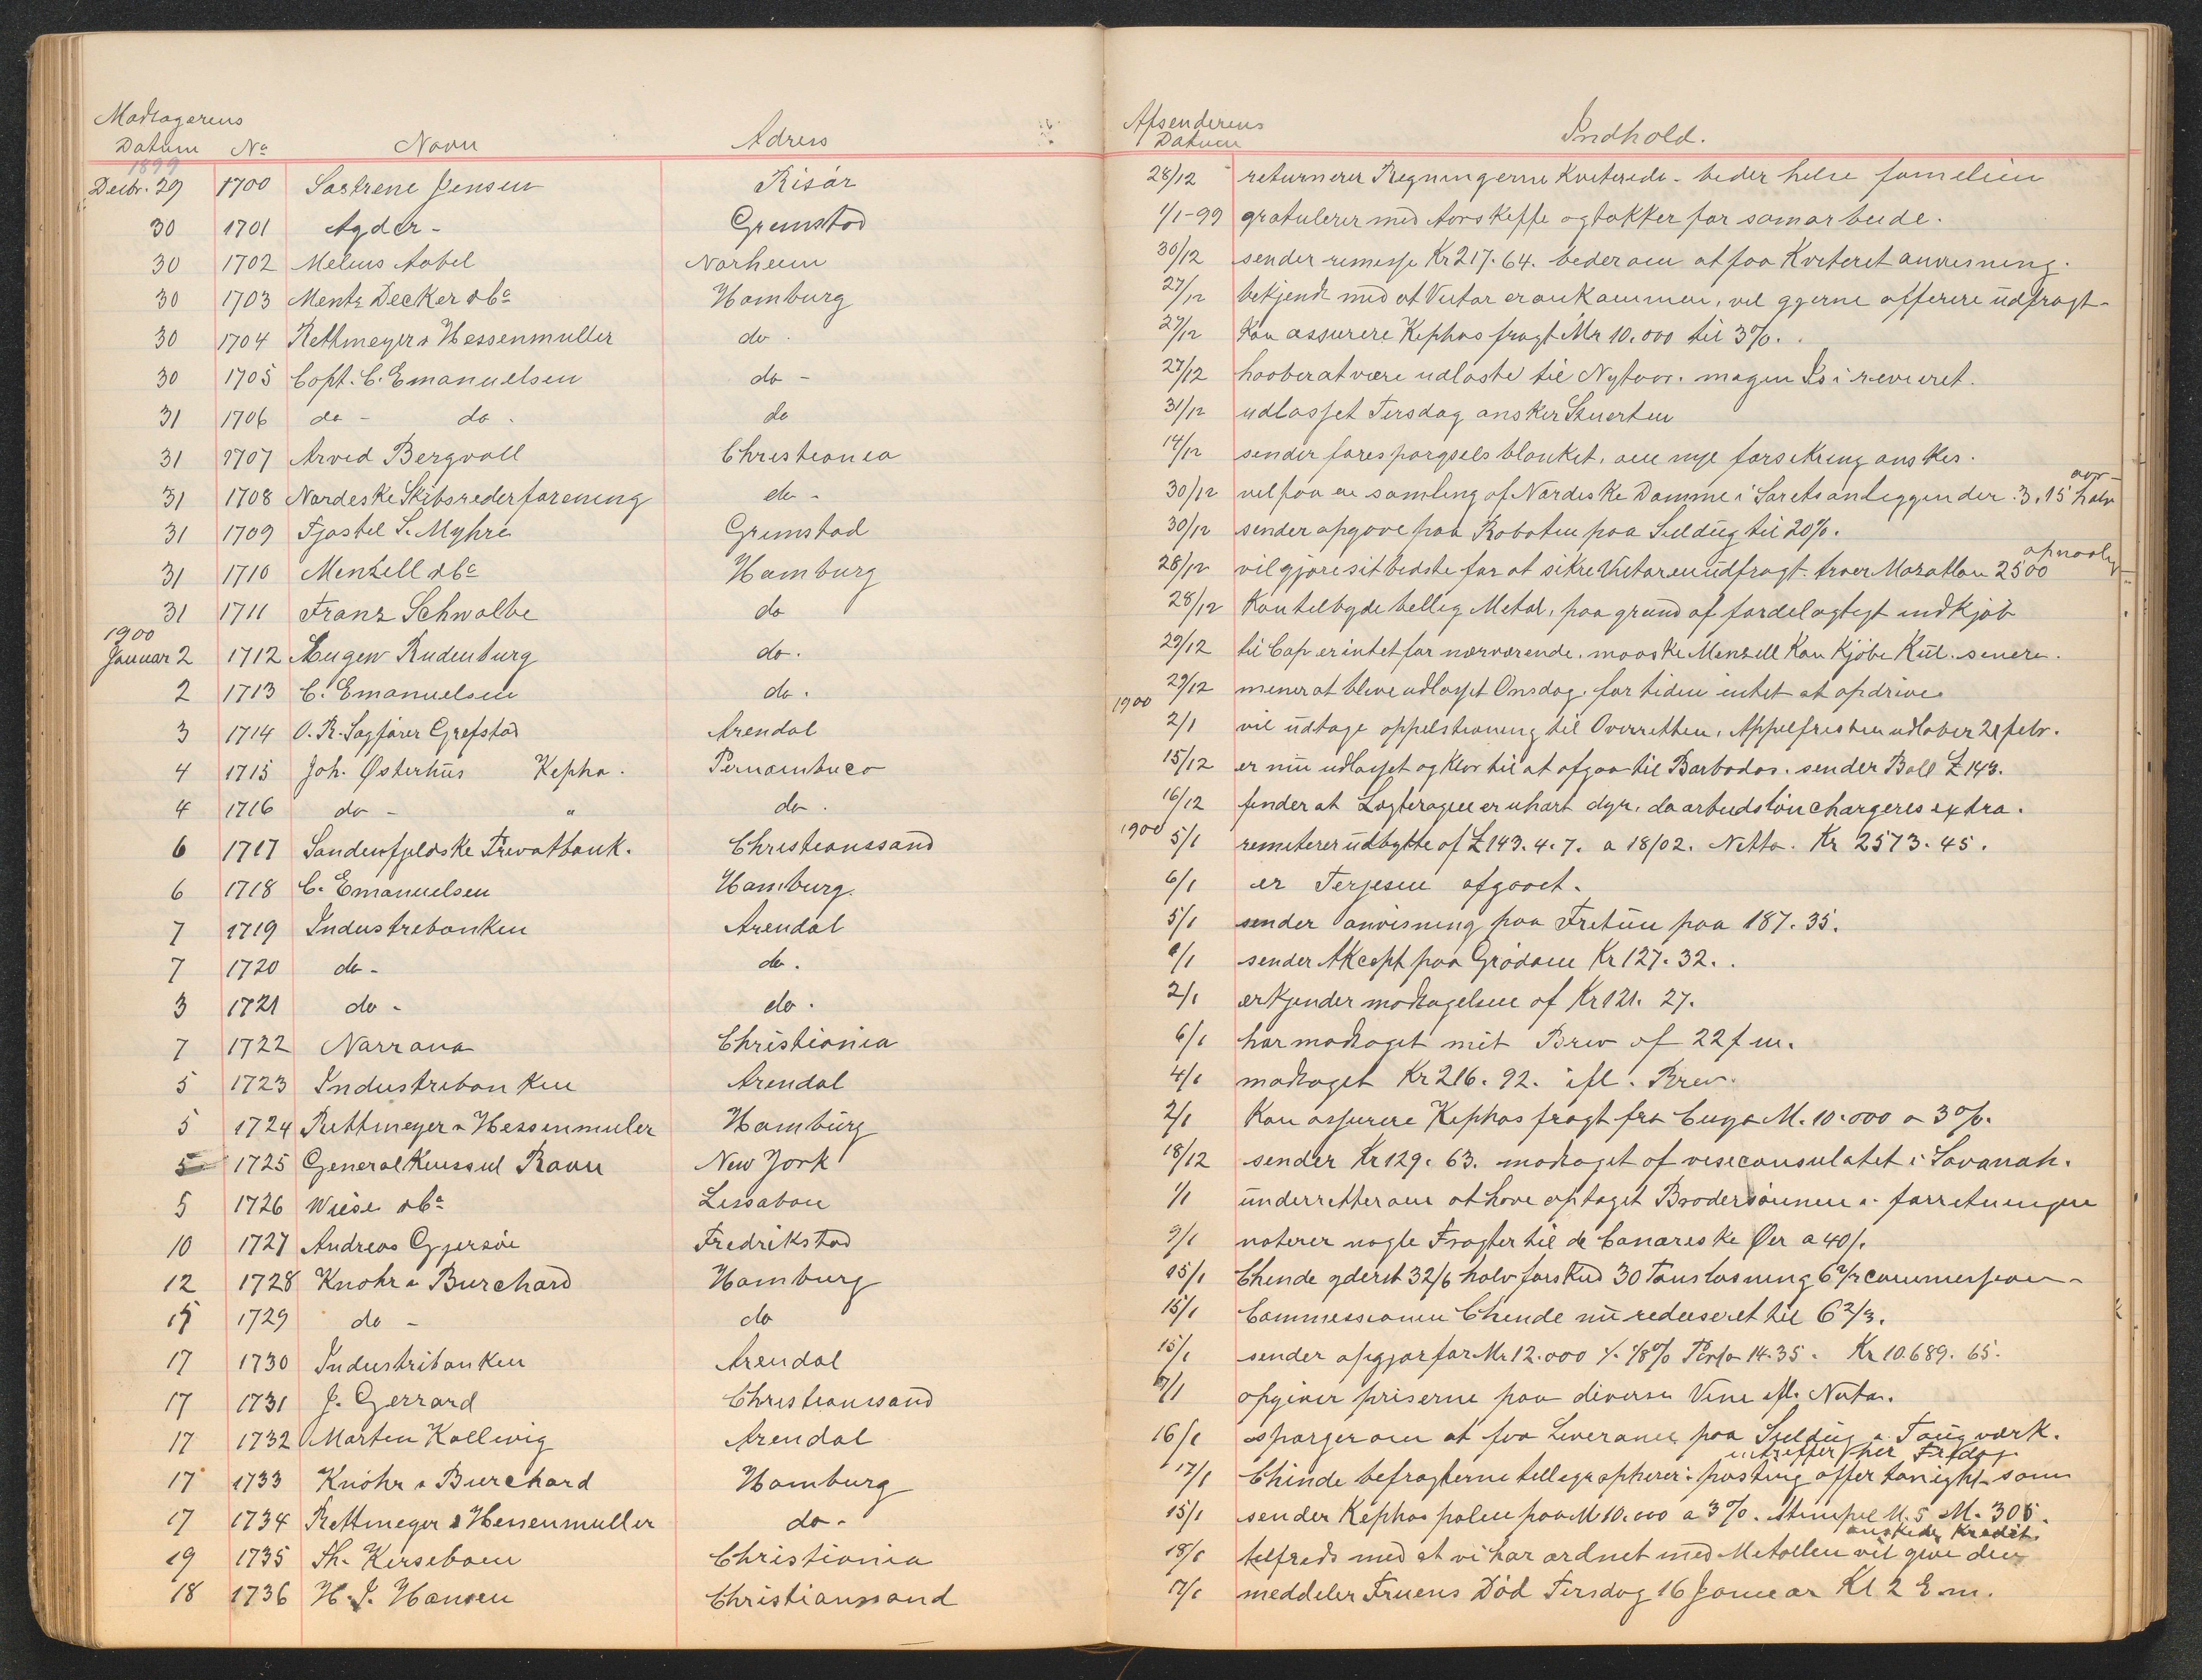 Modtagerens
Datum No Navn Adress
1899
Decbr. 29 1700 Søstrene Jensen Risør
30 1701 Agder - Grimstad
30 1702 Melius Aabel Norheim
30 1703 Mentz Decker & Co Hamburg
30 1704 Rethmeyer & Hessenmuller do.
30 1705 Capt. C. Emanuelsen do -
31 1706 do - do. do
31 1707 Arvid Bergvall Christiania
31 1708 Nordiske Skibsrederforening do -
31 1709 Tjøstel S. Myhre Grimstad
31 1710 Menzell & Co Hamburg
31 1711 Franz Schwalbe do
1900
Januar 2 1712 Eugen Rudenburg do.
2 1713 C. Emanuelsen do.
3 1714 O. R. Sagfører Grefstad Arendal
4 1715 Joh. Østerhus Kepha. Pernambuco
4 1716 do - " do.
6 1717 Søndenfjeldske Privatbank. Christianssand
6 1718 C. Emanuelsen Hamburg.
7 1719 Industribanken Arendal
7 1720 do - do.
3 1721 do - do.
7 1722 Norrøna Christiania
5 1723 Industribanken Arendal
5 1724 Rettmeyer & Hessenmuler Hamburg
5 1725 General Konsul Ravn New York
5 1726 Wiese & Co Lissabon
10 1727 Andreas Gjersøe Fredrikstad
12 1728 Knohr & Burchard Hamburg
15 1729 do - do
17 1730 Industribanken Arendal
17 1731 J. Gerrard Christianssand
17 1732 Morten Kallevig Arendal
17 1733 Knohr & Burchard Hamburg
17 1734 Rettmeyer & Hessenmuller do -
19 1735 Th. Kiersebom Christiania
18 1736 H. J. Hansen Christianssand
Afsenderens
Datum Indhold.
28/12 returnerer Regningerne Kviterede - beder hilse familien
1/1-99 gratulerer med Aarskifte og takker for samarbeide.
30/12 sender remesse Kr 217.64. beder om at faa Kviteret anvisning.
27/12 bekjendt med at Vistar er ankommen, vil gjerne offerere udfragt -
27/12 Kan assurere Kephas fragt Mr 10.000 til 3%.
27/12 haaber at være udlosset til Nytaar. megen Is i revieret.
31/12 udlosset Tirsdag ønsker Stuerten
14/12 sender forespørgsels blanket, om nye forsikring ønskes.
30/12 vil faa en samling af Nordiske Domme i Søretsanliggender. 3.15 halv aar -
30/12 sender opgave paa Rabatten paa Seildug til 20%.
28/12 vil gjøre sit bedste for at sikre Vistar en udfragt. tror Mazatlan 2500 opnaalig
28/12 Kan tilbyde billig Metal, paa grund af fordelagtigt indkjøb
29/12 til Cap er intet for nærværende. maaske Menzell Kan Kjøbe Kul. senere.
29/12 mener at blive udlosset Onsdag, for tiden intet at opdrive
1900
2/1 vil udtage appelstevning til Overretten, Appelfristen udløber 21 febr.
15/12 er nu udlosset og klar til at afgaa til Barbados. sender Ball £ 143.
16/12 finder at Lagteragen er uhørt dyr, da arbudsløn chargeres extra.
1900
5/1 remiterer udbytte af £ 143.4.7. a 18/02. Netto. Kr 2573.45.
6/1 er Terjesen afgaaet.
5/1 sender anvisning paa Fretun paa 187.35.
6/1 sender Akcept paa Grödom Kr 127.32.
2/1 erkjender modtagelsen af Kr 121.27.
6/1 har modtaget mit Brev af 22 f m.
4/1 modtaget Kr 216.92. ifl. Brev.
2/1 Kan assurere Kephas fragt fra Cuyo M. 10.000 a 3%.
18/12 sender Kr 129.63. modtaget af visekonsulatet i Savanah.
1/1 underretter om at have optaget Brodersønnen i forretningen
9/1 noterer nogle Fragter til de Canariske Øer a 40/.
15/1 Chende yderst 32/6 halv forskud 30 Tons losning 6 2/3 commission -
15/1 Commissionen Chende nu reduseret til 6 2/3.
15/1 sender opgjør for Mr 12.000 ٪ 1/8% Porto 14.35. Kr 10.689.65.
17/1 opgiver priserne paa diverse Vine ifl. Nota.
16/1 spørger om at faa Leverance paa Seildug & Taugværk.
17/1 Chinde befragterne tellegrapherer: posting offer tonight - som intreffer her Fredag
15/1 sender Kephas polise paa M 10.000 a 3%. Stempel M. 5 M. 305.
18/1 tilfreds med at vi har ordnet med Metallen vil give den ønskede Kredit
17/1 meddeler Fruens Død Tirsdag 16 Januar Kl 2 E m.